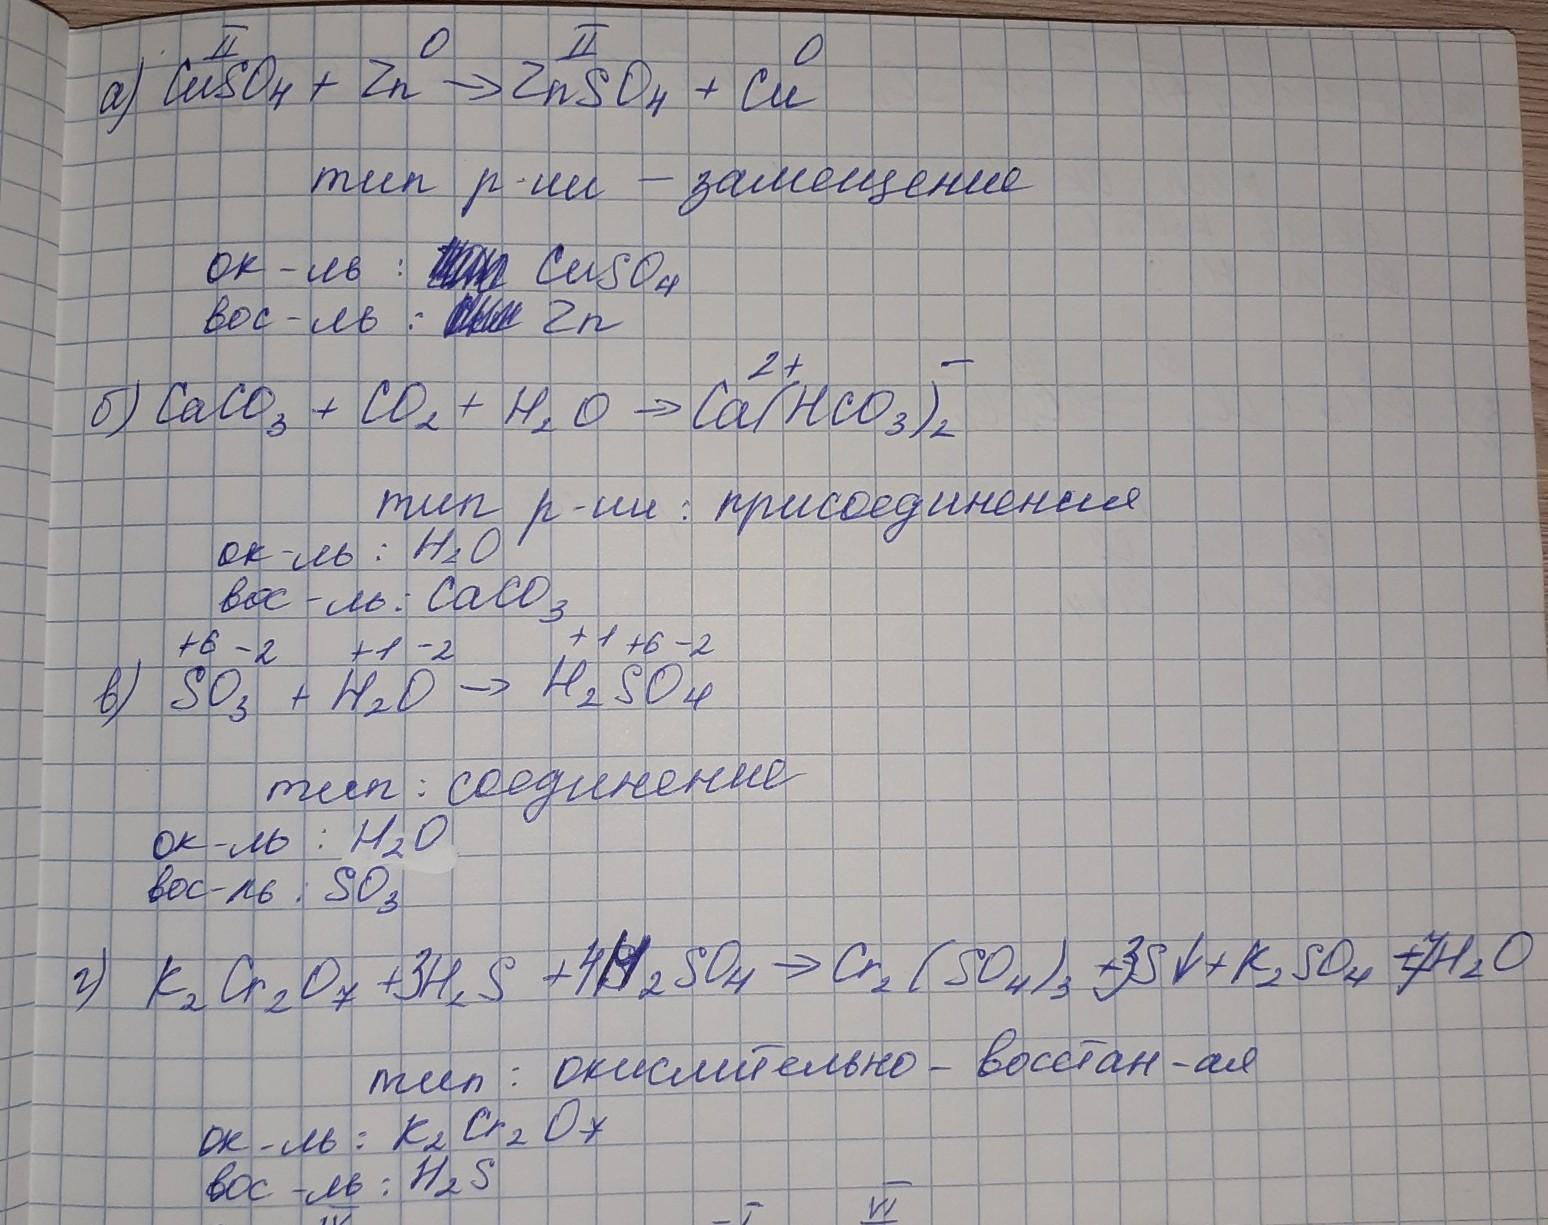 II 0 II 0
а) CuSO4 + Zn → ZnSO4 + Cu
тип р-ии – замещение
ок-ль : CuSO4
вос-ль : Zn
2+ −
б) CaCO3 + CO2 + H2O → Ca(HCO3)2
тип р-ии : присоединения
ок-ль : H2O
вос-ль : CaCO3
+6 -2 +1 -2 +1 +6 -2
в) SO3 + H2O → H2SO4
тип : соединение
ок-ль : H2O
вос-ль : SO3
г) K2Cr2O7 + 3H2S + 4H2SO4 → Cr2(SO4)3 + 3S↓ + K2SO4 + 7H2O
тип : окислительно-восстан-ая
ок-ль : K2Cr2O7
вос-ль : H2S
IV -I VI